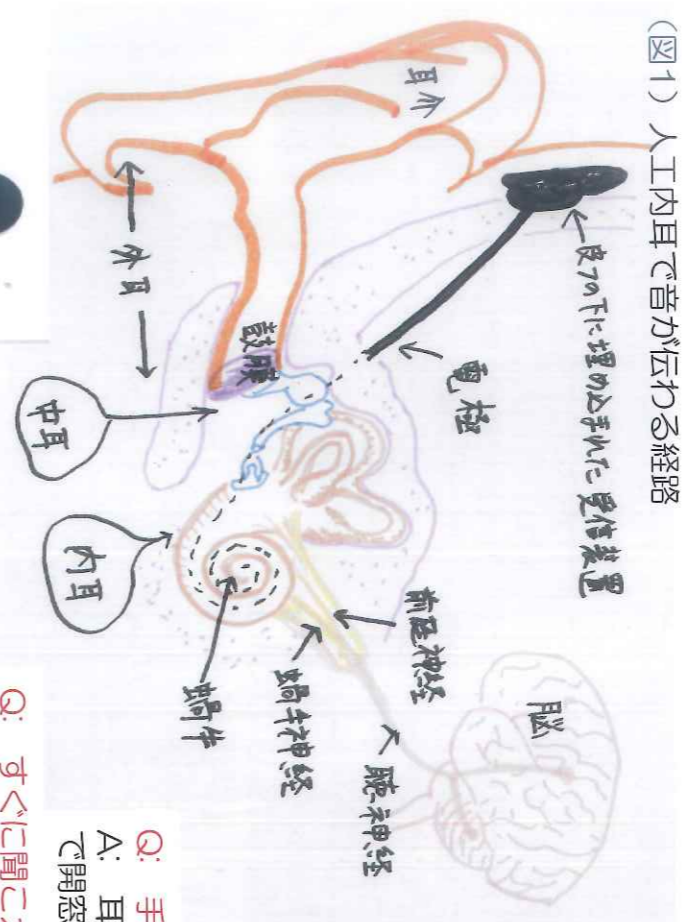 (図1) 人工内耳で音が伝わる経路
耳介
皮フの下に埋め込まれた受信装置
電極
外耳
鼓膜
中耳
内耳
前庭神経
蝸牛神経
蝸牛
聴神経
脳
Q: 手
A: 耳
で開窓
Q: すぐに聞こ